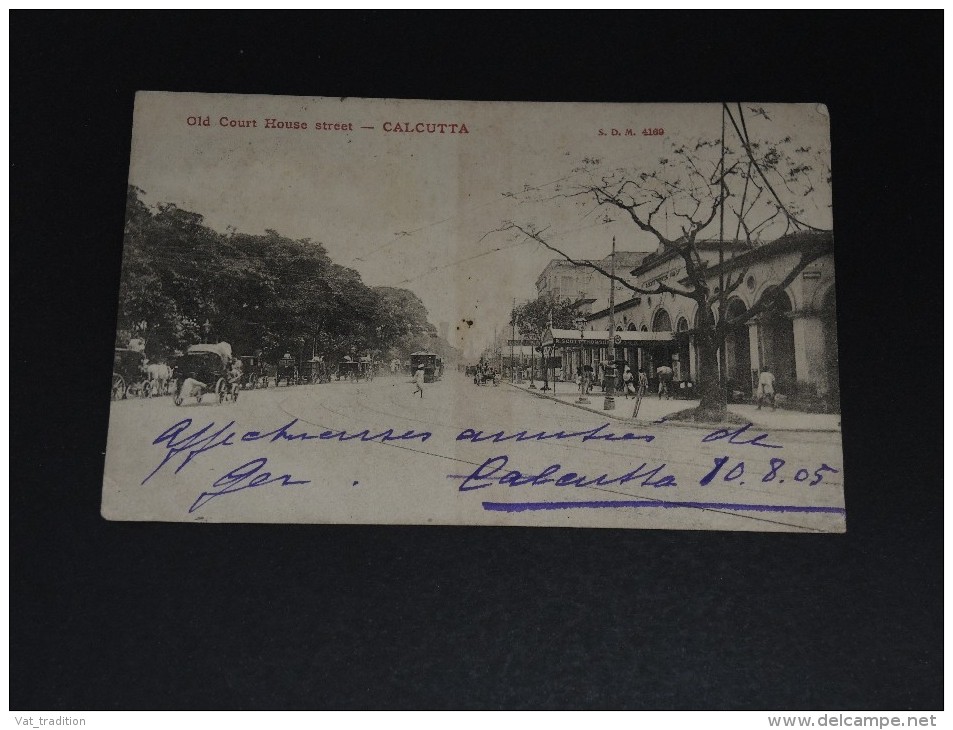 Old Court House street — CALCUTTA
S. D. M. 4169
Affectueuses amitiés de
Ger.
Calcutta 10.8.05
Vat_tradition
www.delcampe.net